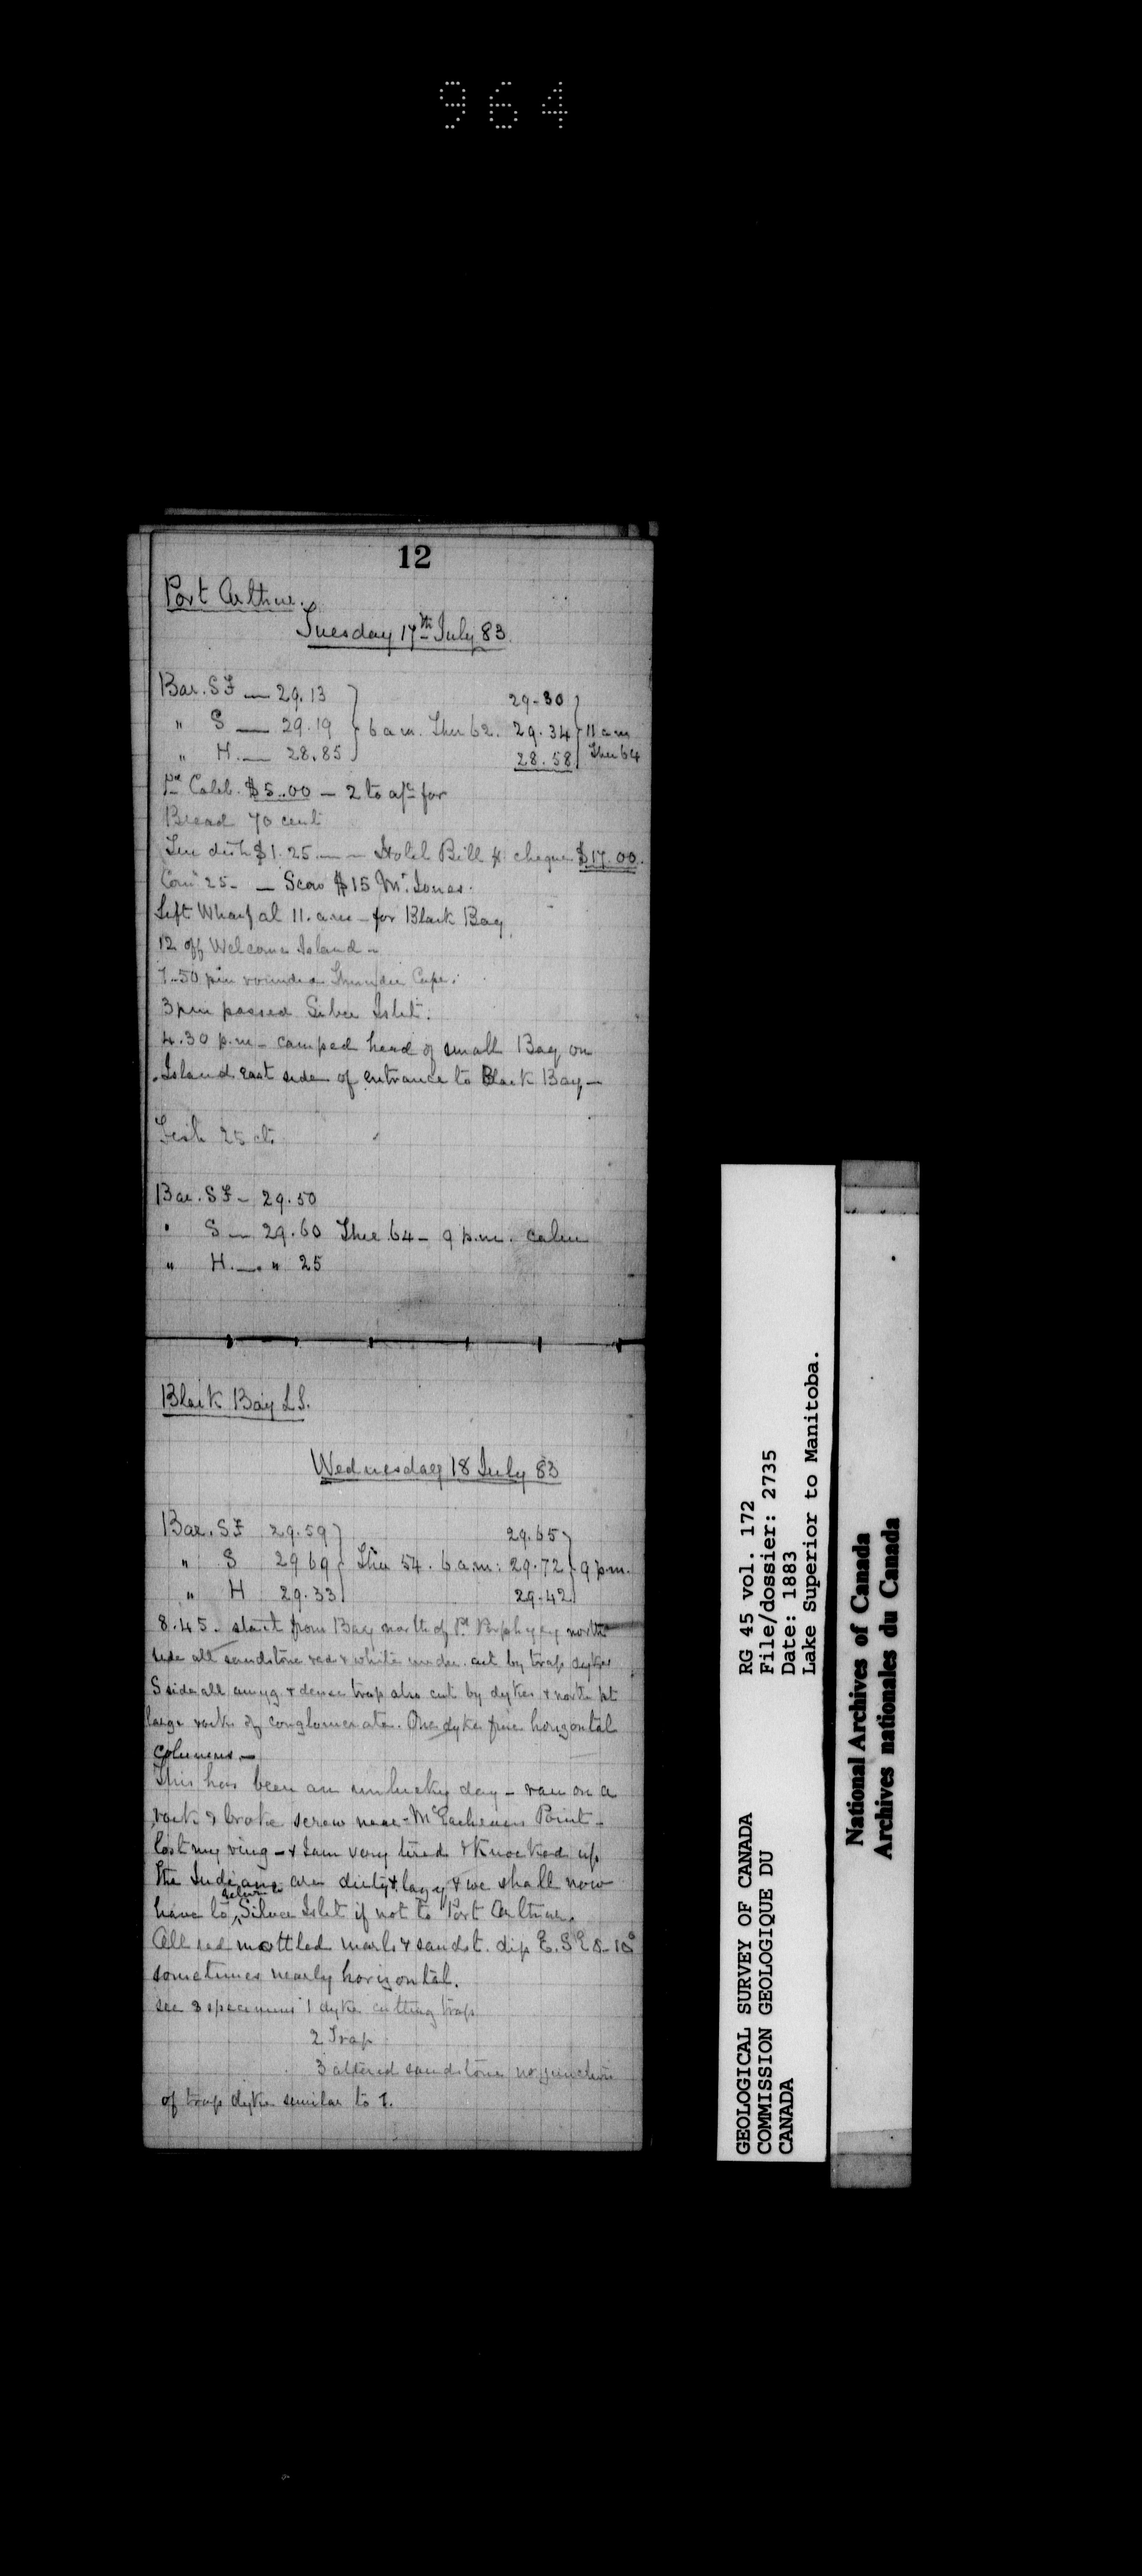 964
12
Port Arthur.
Tuesday 17th July 83.
Bar. SF — 29.13 29.30
" S — 29.19 6 a.m. Ther 62. 29.34 11 a m
" H. — 28.85 28.58 Ther 64
Pd Caleb. $5.00 — 2 to a/c for
Bread 70 cent
Tin dish $1.25 — — Hotel Bill cheque $17.00.
25 — Scow $15 Mr. Jones.
Left Wharf at 11. a.m — for Black Bay
12 off Welcome Island —
1.50 pm rounded Thunder Cape.
3 pm passed Silver Islet.
4.30 p.m — camped head of small Bay on
Island east side of entrance to Black Bay —
Fish 25 ct.
Bar. SF — 29.50
" S — 29.60 Ther 64 — 9 p.m. calm
" H. — " 25
Black Bay L.S.
Wednesday 18 July 83
Bar. SF 29.59 29.65
" S 29 69 Ther 54. 6 a.m: 29.72 9 p.m.
" H 29.33 29.42
8.45. start from Bay north of Pt. Porphyry north
side all sandstone red & white under. cut by trap dykes
S side all amyg. & dense trap also cut by dykes & north pt
large rocks of conglomerate. One dyke fine horizontal
columns. —
This has been an unlucky day — ran on a
rock & broke screw near McEacherns Point —
lost my ring — & I am very tired & knocked up
the Indians are dirty & lazy & we shall now
have to return to Silver Islet if not to Port Arthur.
All red mottled marls & sandst. dip E.S.E 8-10°
sometimes nearly horizontal.
see 3 specimens 1 dyke cutting trap
2 Trap
3 altered sandstone nr junction
of trap dyke similar to 1.
GEOLOGICAL SURVEY OF CANADA
COMMISSION GEOLOGIQUE DU
CANADA
RG 45 vol. 172
File/dossier: 2735
Date: 1883
Lake Superior to Manitoba.
National Archives of Canada
Archives nationales du Canada